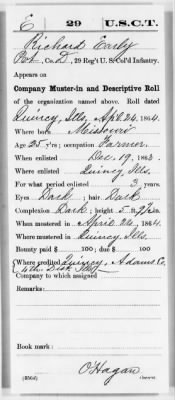 E 29 U.S.C.T.
Richard Early
Pvt., Co. D, 29 Reg't U. S. Col'd Infantry.
Appears on
Company Muster-in and Descriptive Roll
of the organization named above. Roll dated
Quincy, Ills, Apr. 24, 1864.
Where born Missouri
Age 25 y'rs; occupation Farmer
When enlisted Dec 19, 1863.
Where enlisted Quincy, Ills.
For what period enlisted 3 years.
Eyes Dark; hair Dark
Complexion Dark; height 5 ft. in.
When mustered in April 24, 1864.
Where mustered in Quincy, Ills.
Bounty paid $ 100; due $ 100
Where credited Quincy, Adams Co.
4th Dist
Company to which assigned
Remarks:
Book mark:
O'Hagan